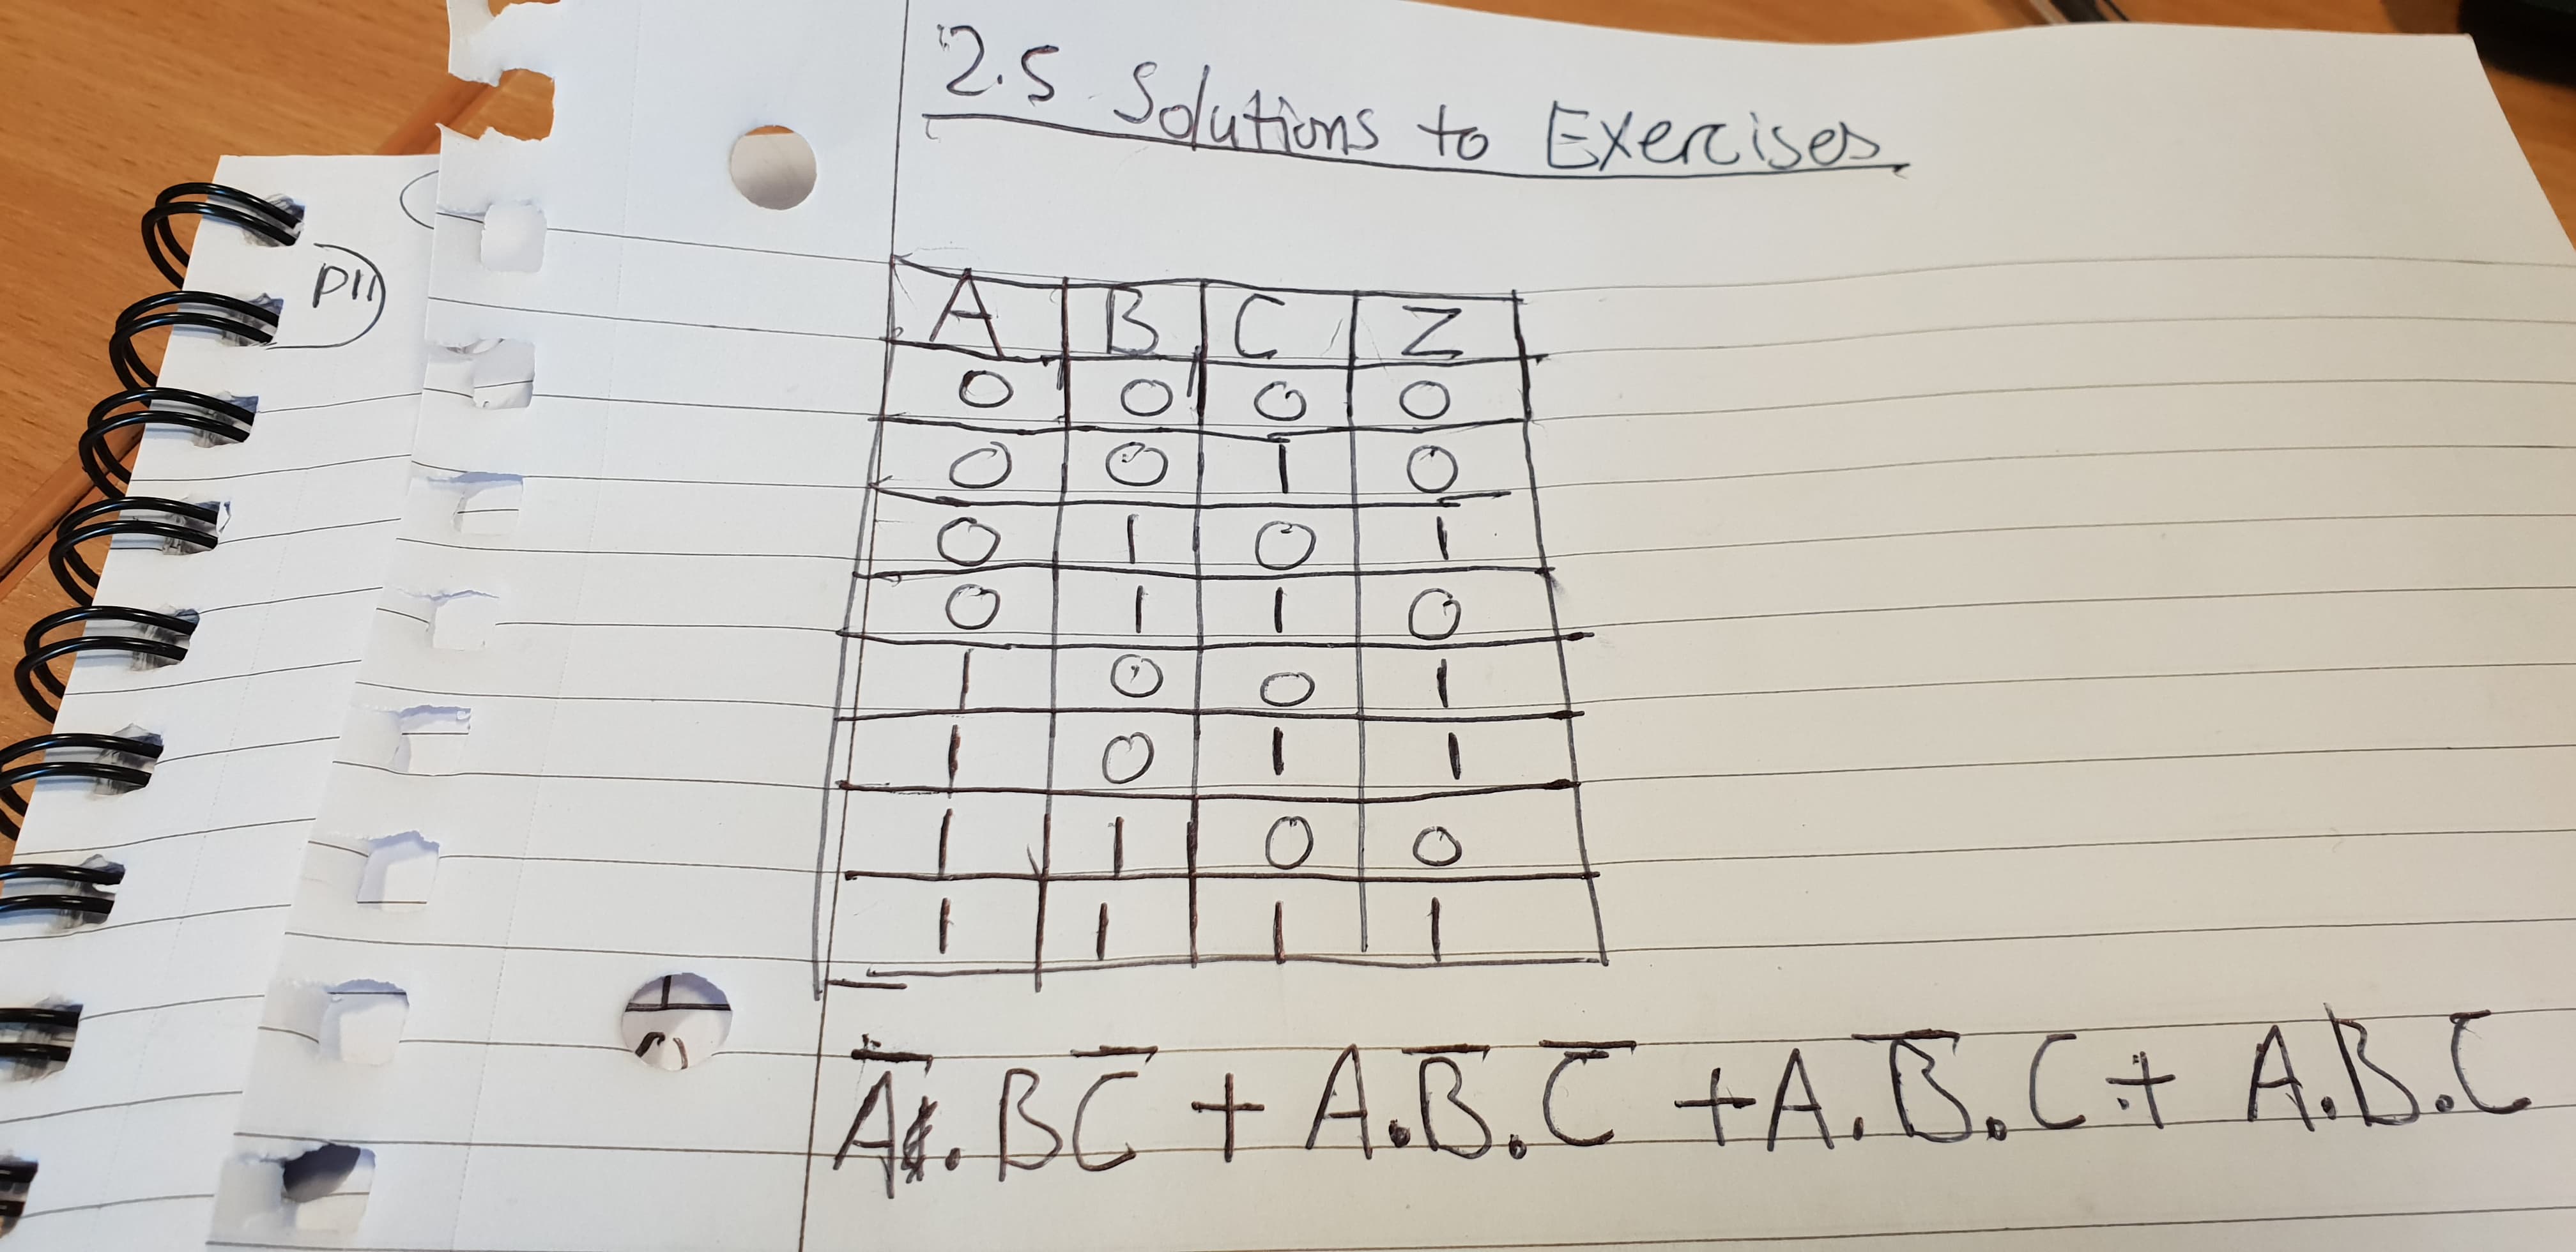 2.5 Solutions to Exercises
P11
A B C Z
0 0 0 0
0 0 1 0
0 1 0 1
0 1 1 0
1 0 0 1
1 0 1 1
1 1 0 0
1 1 1 1
A̅.BC̅ + A.B̅.C̅ + A.B̅.C + A.B.C